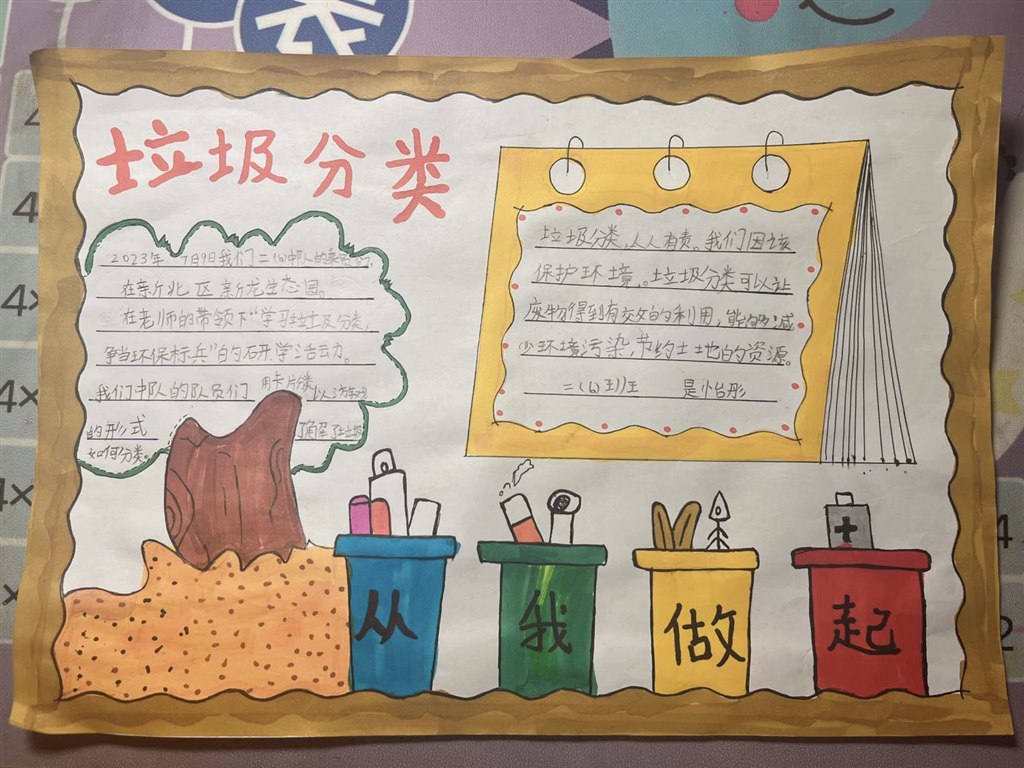 垃圾分类
2023年 7月9日我们二(6)中队的
在新北区新龙生态园。
在老师的带领下“学习垃圾分类,
争当环保标兵”的研学活动。
我们中队的队员们 用卡片类 以游戏
的形式
如何分类。
垃圾分类,人人有责。我们因该
保护环境,。垃圾分类可以让
废物得到有效的利用,能够减
少环境污染,节约土地的资源。
二(6)班
从
我
做
起